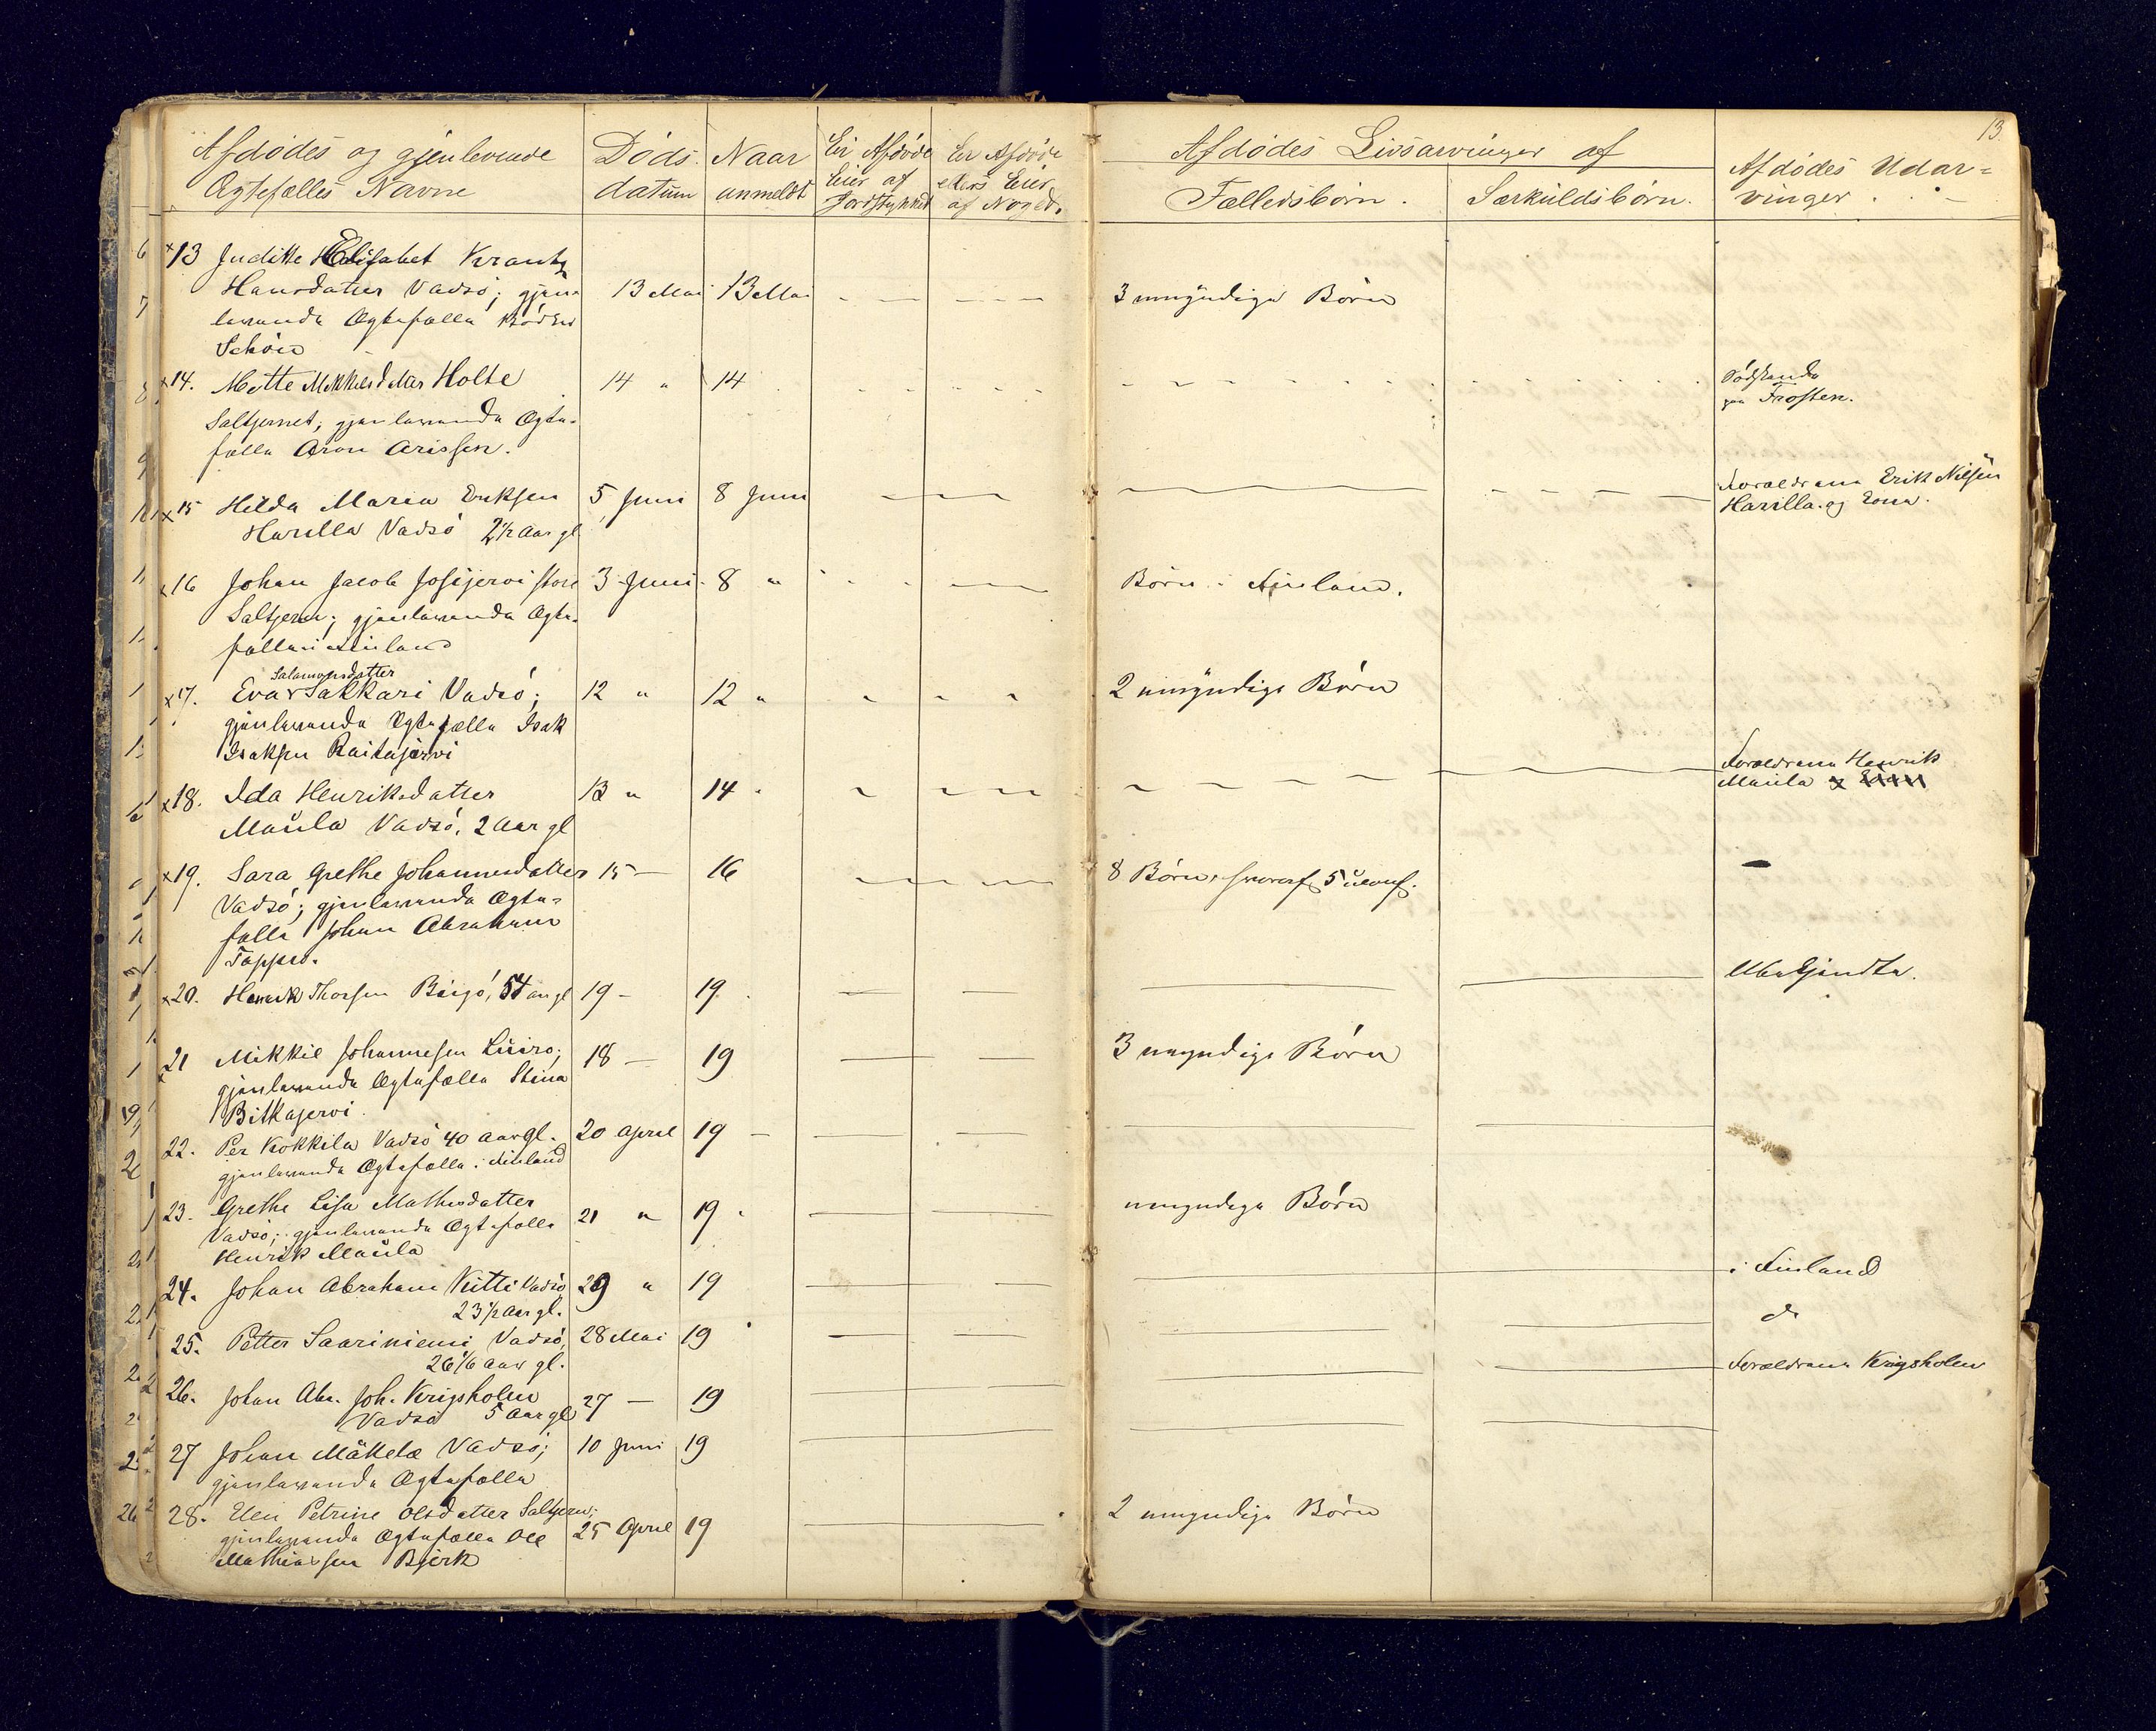 13
Afdödes og gjenlevende
Ægtefælles Navne
Döds
datum
Naar
anmeldt
Er Afdöde
Eier af
Jordstykket
Er Afdöde
ellers Eier
af Noget.
Afdödes Livsarvinger af
Fælledsbörn.
Særkuldsbörn.
Afdödes Udar=
vinger.
x13 Judithe Elisabet Krantz
Hansdatter Vadsö; gjen
levende Ægtefælle
Schön
13 Mai 13 Mai
3 umyndige Börn
x14. Mette Mikkelsdatter Holte
Saltjernet; gjenlevende Ægte-
fælle Aron Arissen.
14 " 14
Södskende
paa Frosten.
x15 Hilda Maria Eriksen
Harilla Vadsö 2½ Aar gl
5 Juni 8 Juni
Forældrene Erik Nilsen
Harilla og Kone.
x16 Johan Jacob Josijervi store
Saltjern; gjenlevende Ægte-
fælle i Finland
3 Juni 8 "
Börn i Finland.
Salamonsdatter
x17. Eva Sakkari Vadsö;
gjenlevende Ægtefælle Isak
Isaksen Raitajärvi
12 " 12 "
2 umyndige Börn
x18. Ida Henriksdatter
Maula Vadsö, 2 Aar gl
13 " 14 "
Forældrene Henrik
Maula
x19. Sara Grethe Johannesdatter
Vadsö; gjenlevende Ægte-
fælle Johan Abraham
Tappio.
15 — 16
8 Börn, hvoraf 5 ukonf.
x20. Henrik Thorsen Bugö, 54 aar gl
19 — 19
Ubekjendte.
x21 Mikkel Johannesen Luiro;
gjenlevende Ægtefælle Stina
Bitkajervi
18 — 19
3 umyndige Börn
22. Per Kokkila Vadsö 40 Aar gl.
gjenlevende Ægtefælle i Finland
20 April 19 —
23. Grethe Lisa Mathisdatter
Vadsö; gjenlevende Ægtefælle
Henrik Maula
21 " 19 "
umyndige Börn
24. Johan Abraham Kitti Vadsö
23½ Aar gl.
29 " 19
i Finland
25. Petter Saariniemi Vadsö,
26 1/6 Aar gl.
28 Mai 19
do
26. Johan Abr. Joh. Krigsholm
Vadsö 5 Aar gl
27 — 19
Forældrene Krigsholm
27 Johan Mäkelæ Vadsö;
gjenlevende Ægtefælle
10 Juni 19
28. Elen Petrine Olsdatter Saltjern;
gjenlevende Ægtefælle Ole
Mathiassen Bjerk
25 April 19
2 umyndige Börn